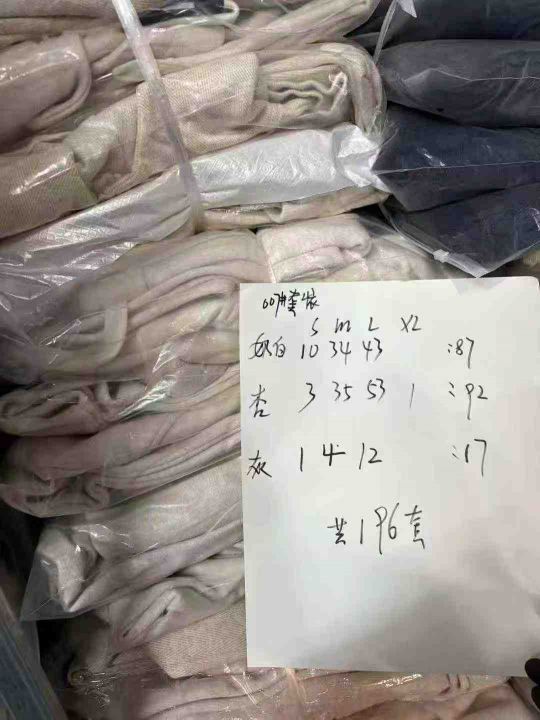 007#套装
S M L X2
奶白 10 34 43 :87
杏 3 35 53 1 :92
灰 1 4 12 :17
共196套